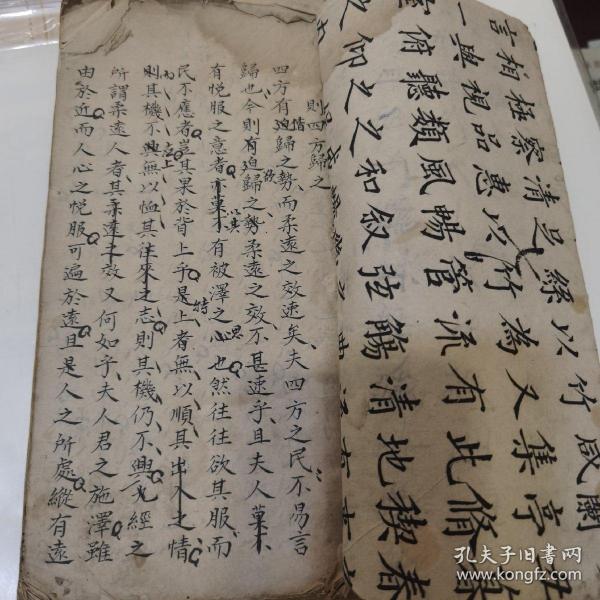 闌亭脩禊
咸集此地
竹又有清
以為流觴
絲竹管弦
是以暢叙
清惠風和
察品類之
極視聽之
相與俯仰
言一室之
則四方歸之
四方有迫歸之勢而柔遠之效速矣夫四方之民不易言
歸也今則有迫歸之勢柔遠之效不甚速乎且夫人
有悅服之意者亦不有被澤之心也然往往欲其服而
民不應者豈其果於背上乎是上者無以順其出入之情
則其機不興無以恤其往來之志則其機仍不興九經之
所謂柔遠人者其柔遠之效又何如乎夫人君之施澤雖
由於近而人心之悅服可遍於遠且是人之所處縱有遠
孔夫子旧書网
www.kongfz.com